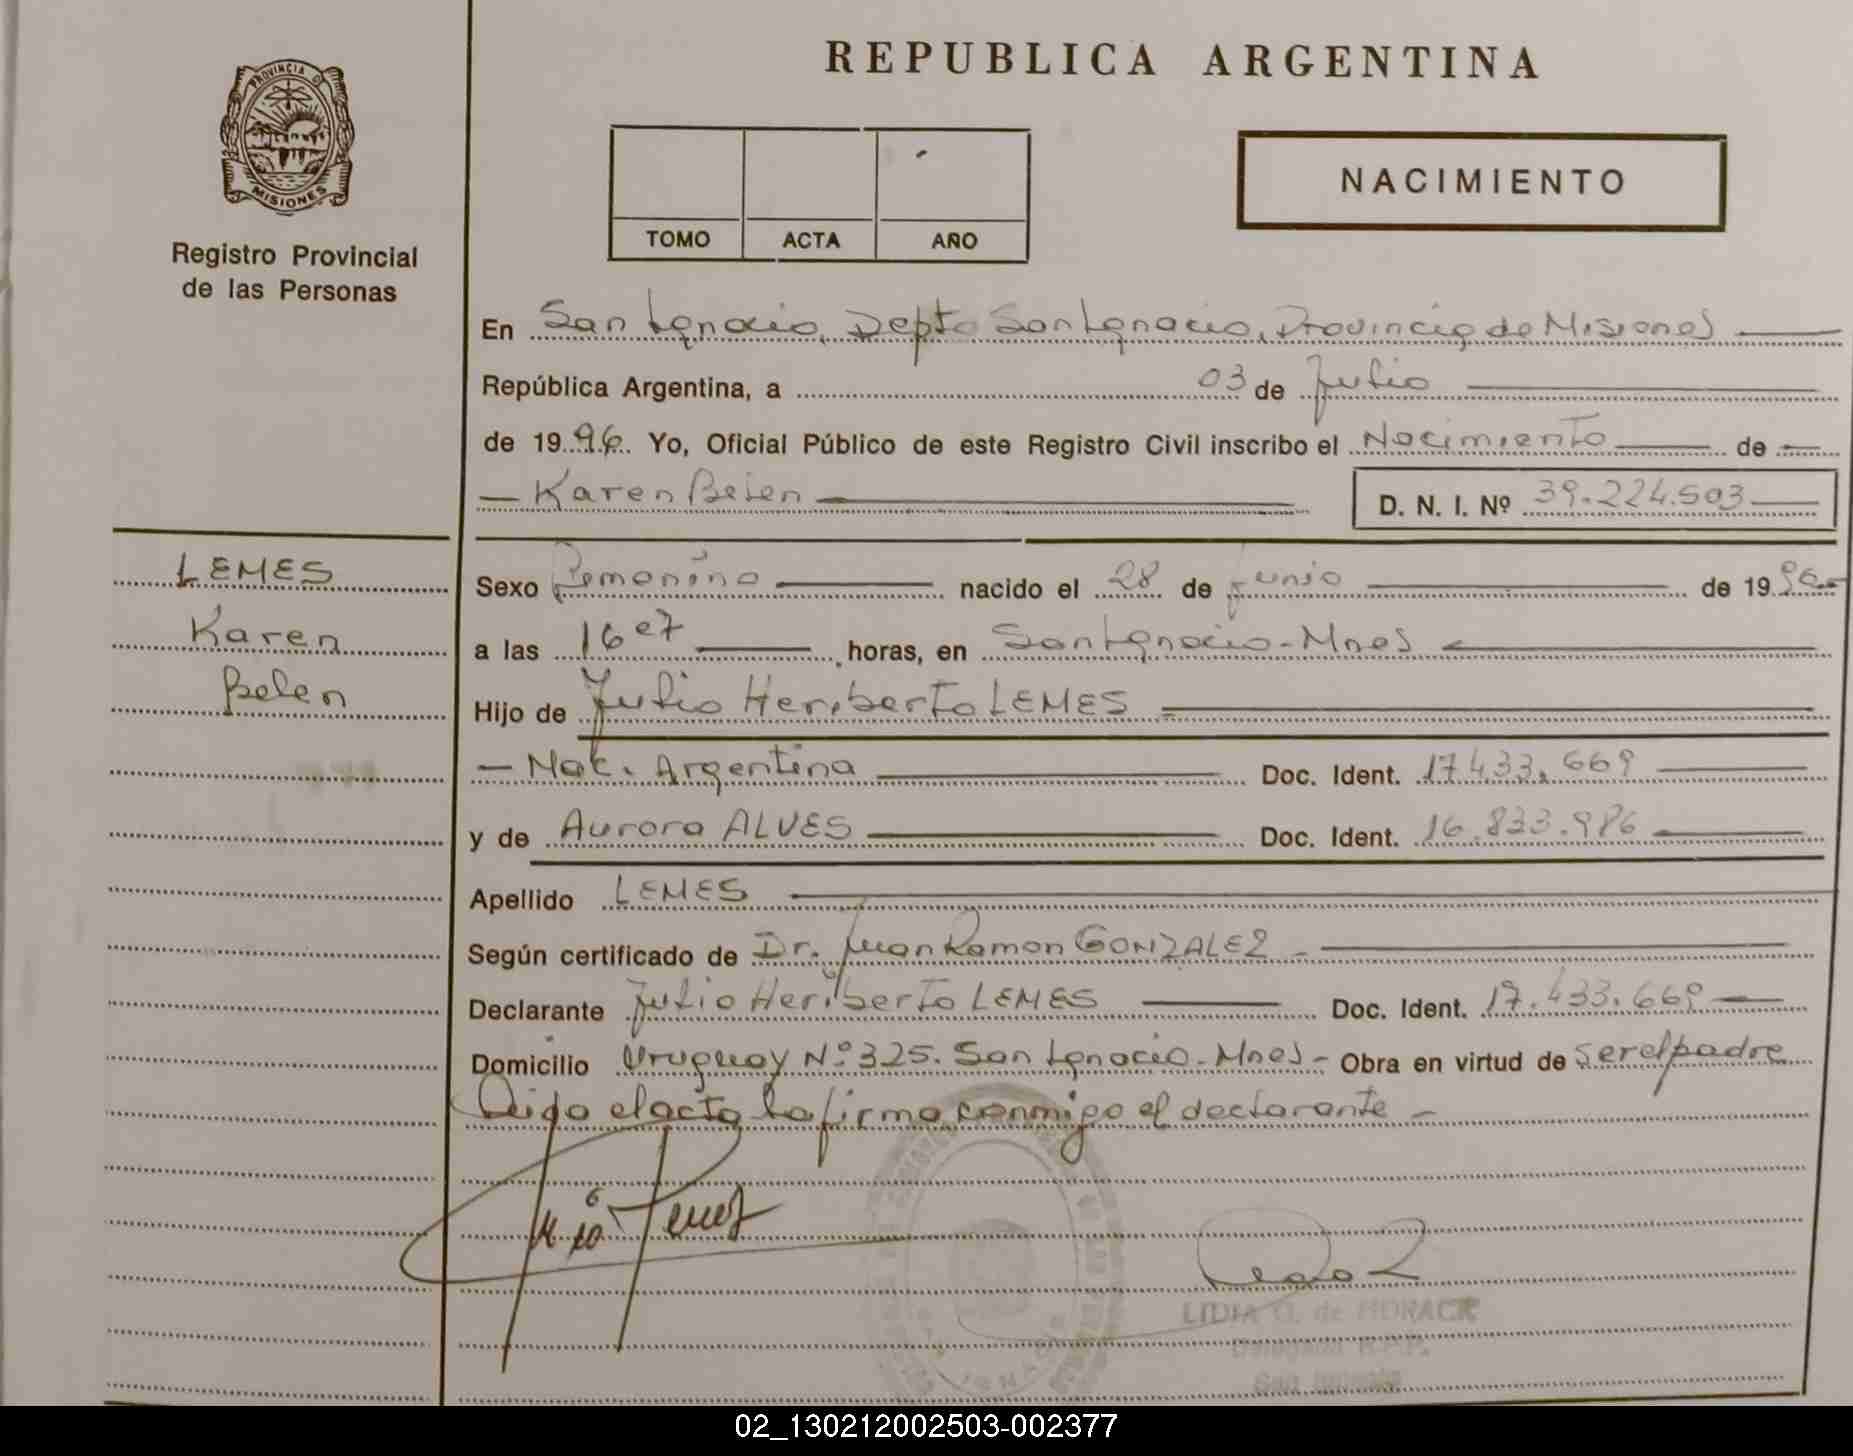 REPUBLICA ARGENTINA
PROVINCIA D
MISIONES
Registro Provincial
de las Personas
TOMO ACTA AÑO
NACIMIENTO
En San Ignacio, Depto San Ignacio, Provincia de Misiones
República Argentina, a 03 de Julio
de 1996. Yo, Oficial Público de este Registro Civil inscribo el Nacimiento de
Karen Belen D. N. I. Nº 39.224.503
LEMES
Karen
Belen
Sexo Femenino nacido el 28 de junio de 1996
a las 16 horas, en San Ignacio - Mnes
Hijo de Julio Heriberto LEMES
- Nac. Argentina Doc. Ident. 17.433.669
y de Aurora ALVES Doc. Ident. 16.833.986
Apellido LEMES
Según certificado de Dr. Juan Ramon GONZALEZ -
Declarante Julio Heriberto LEMES Doc. Ident. 17.433.669
Domicilio Uruguay Nº 325. San Ignacio - Mnes - Obra en virtud de ser el padre
Leido el acta la firma conmigo el declarante -
LIDIA G. de HORACK
Delegada R.P.P.
San Ignacio
02_130212002503-002377